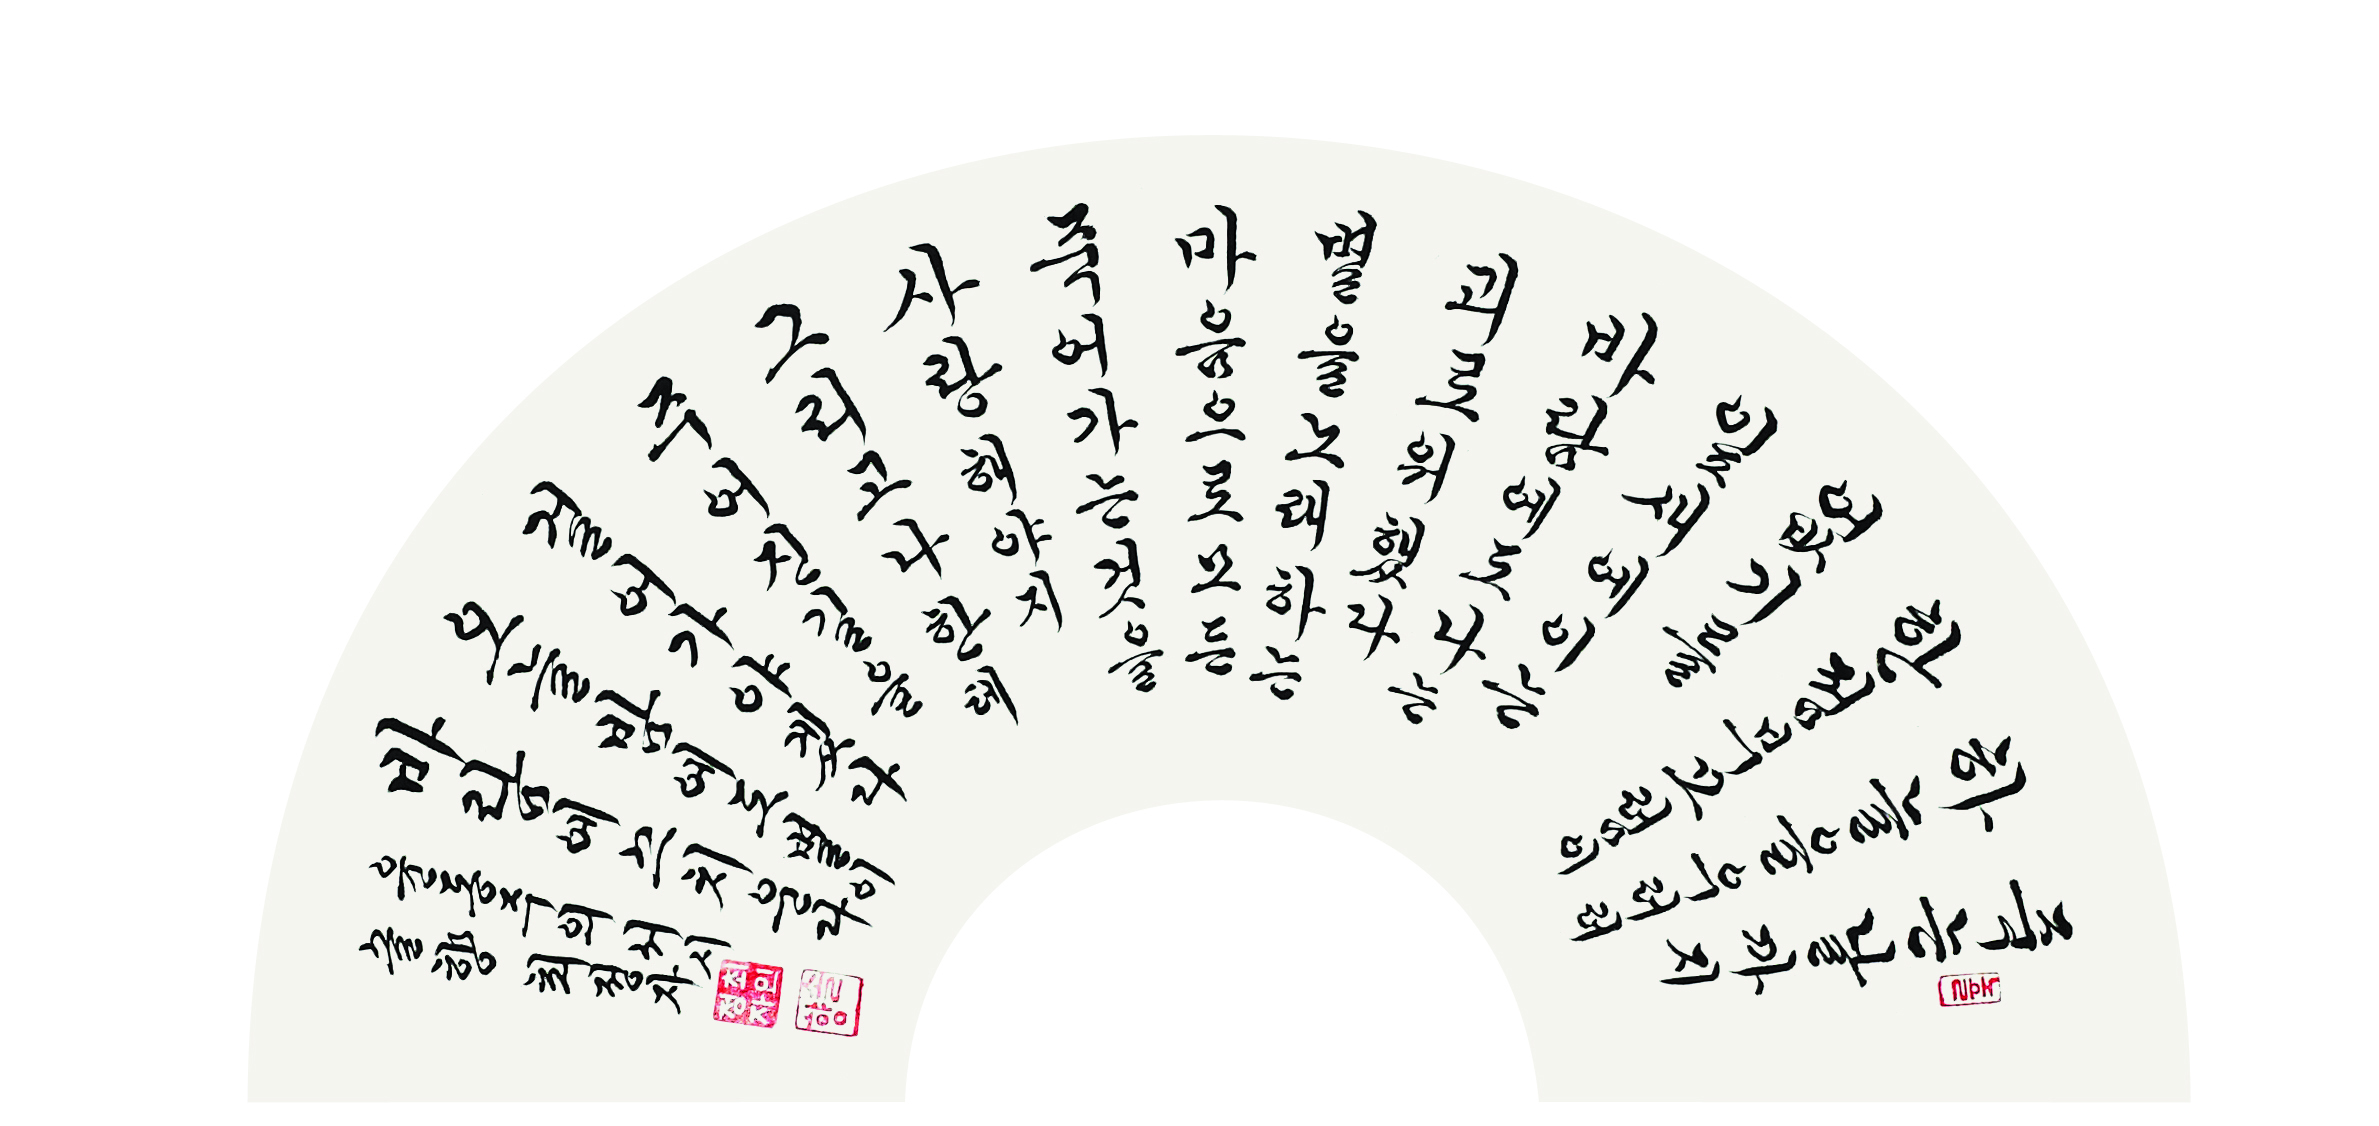 죽는날까지
하늘을우러러
한점부끄럼이
없기를
잎새에이는
바람에도나는
괴로워했다
별을노래하는
마음으로모든
죽어가는것을
사랑해야지
그리고나한테
주어진길을
걸어가야겠다
오늘밤에도별이
바람에스치운다
윤동주의서시
최정자
최정자인